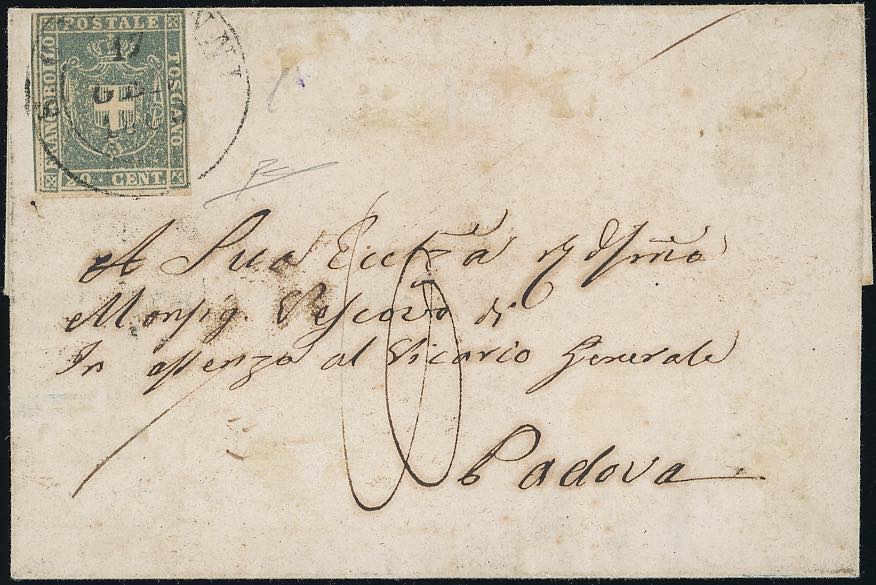 FRANCOBOLLO
POSTALE
TOSCANO
20 CENT.
17
GE
A Sua Eccza
Monsig. Vescovo di
In assenza al Vicario Generale
Padova